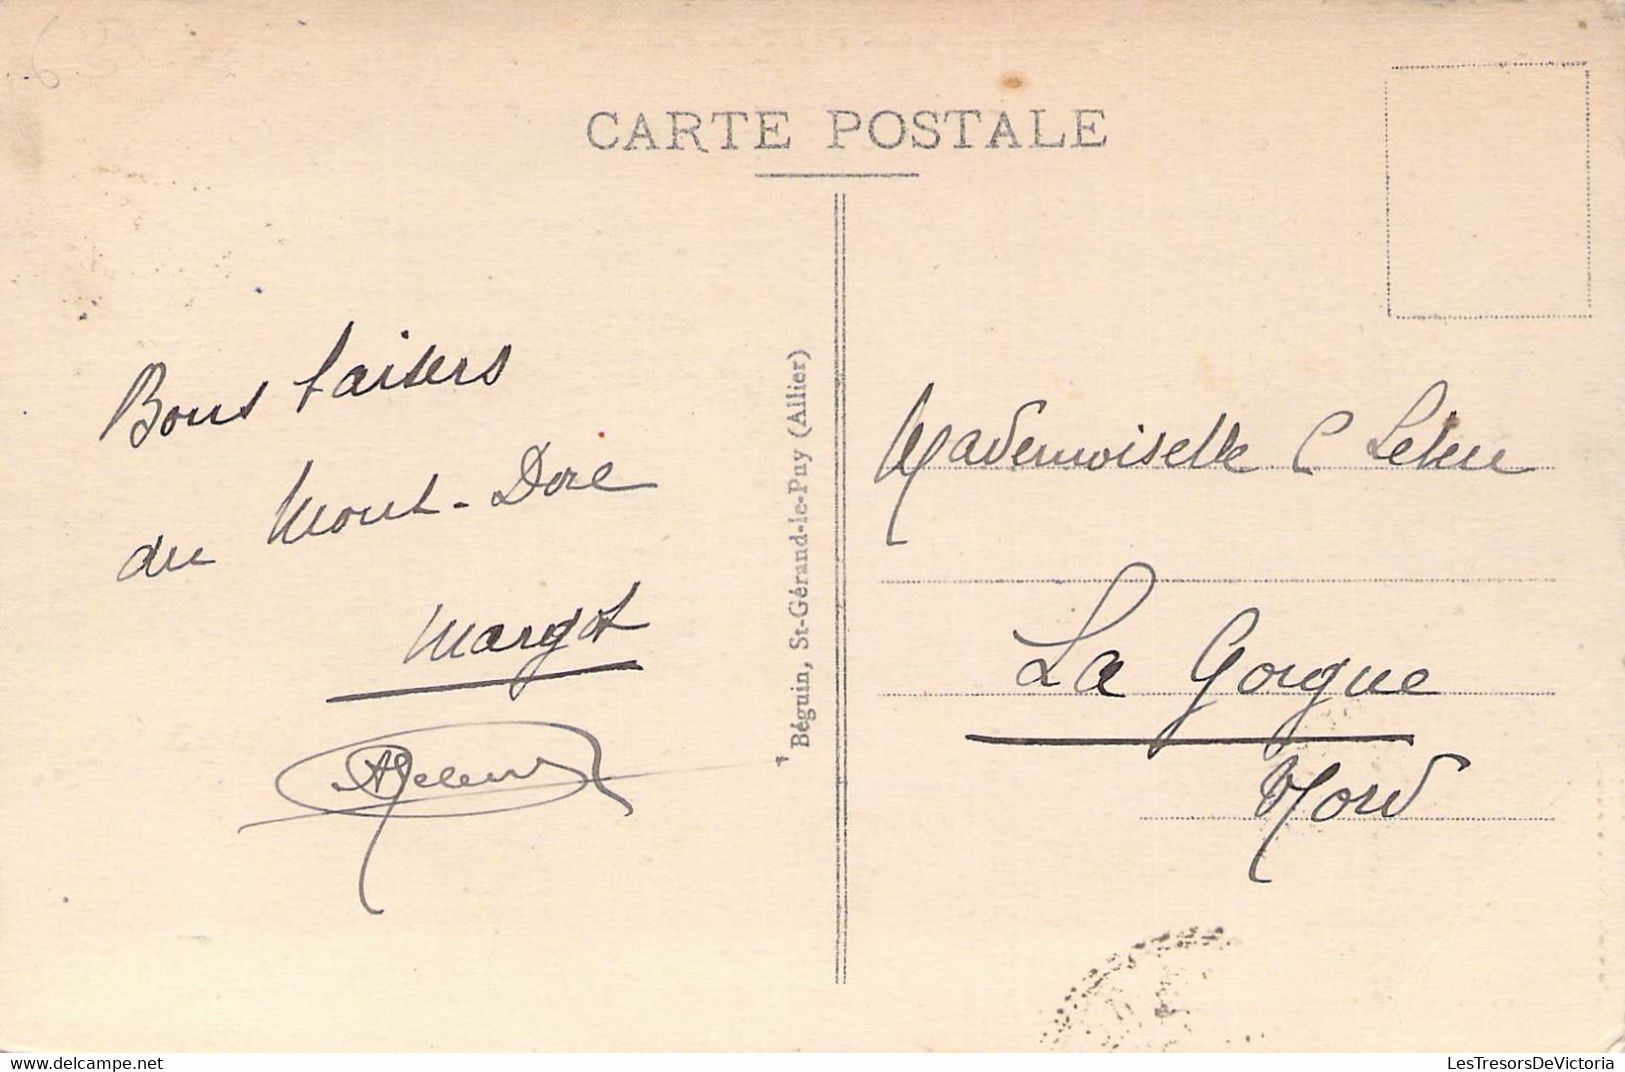 CARTE POSTALE
Bons baisers
du Mont-Dore
Margot
Béguin, St-Gérand-le-Puy (Allier)
Mademoiselle C Leleu
La Gorgue
Nord
LesTresorsDeVictoria
delcampe.net